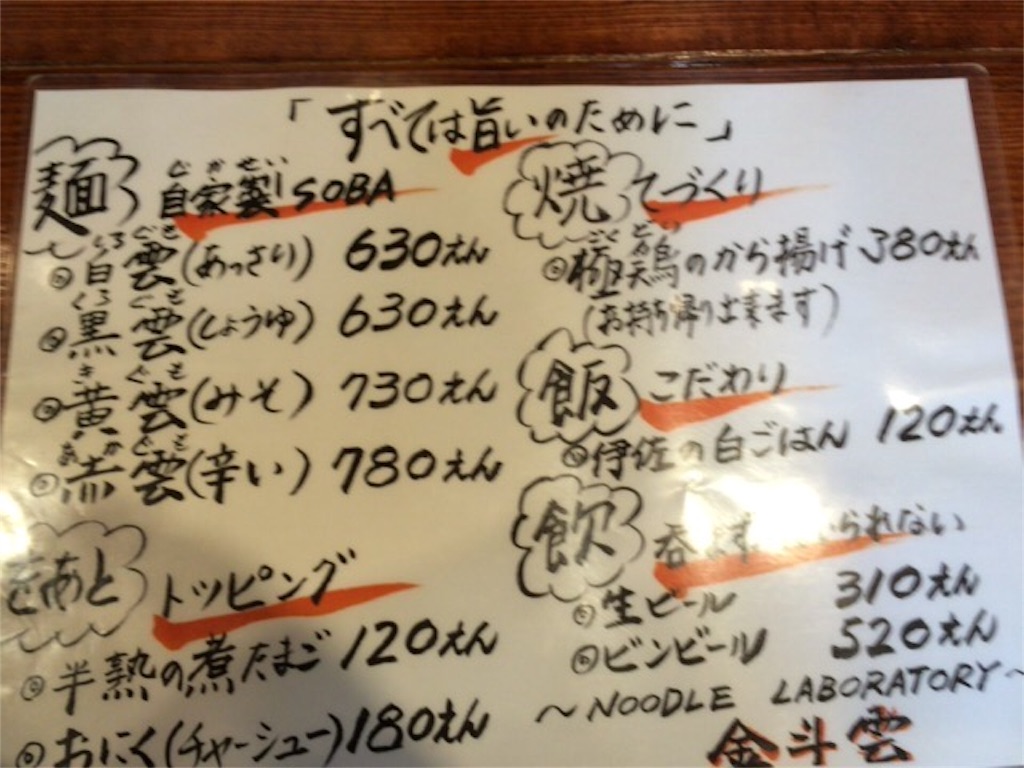 「すべては旨いのために」
麺 自家製SOBA
じかせい
白雲(あっさり) 630えん
しろぐも
黒雲(しょうゆ) 630えん
くろぐも
黄雲(みそ) 730えん
きぐも
赤雲(辛い) 780えん
あかぐも
あと トッピング
半熟の煮たまご 120えん
おにく(チャーシュー) 180えん
焼 てづくり
極鶏のから揚げ 380えん
ごくどり
(お持ち帰り出来ます)
飯 こだわり
伊佐の白ごはん 120えん
飲 呑まず られない
生ビール 310えん
ビンビール 520えん
~NOODLE LABORATORY~
金斗雲